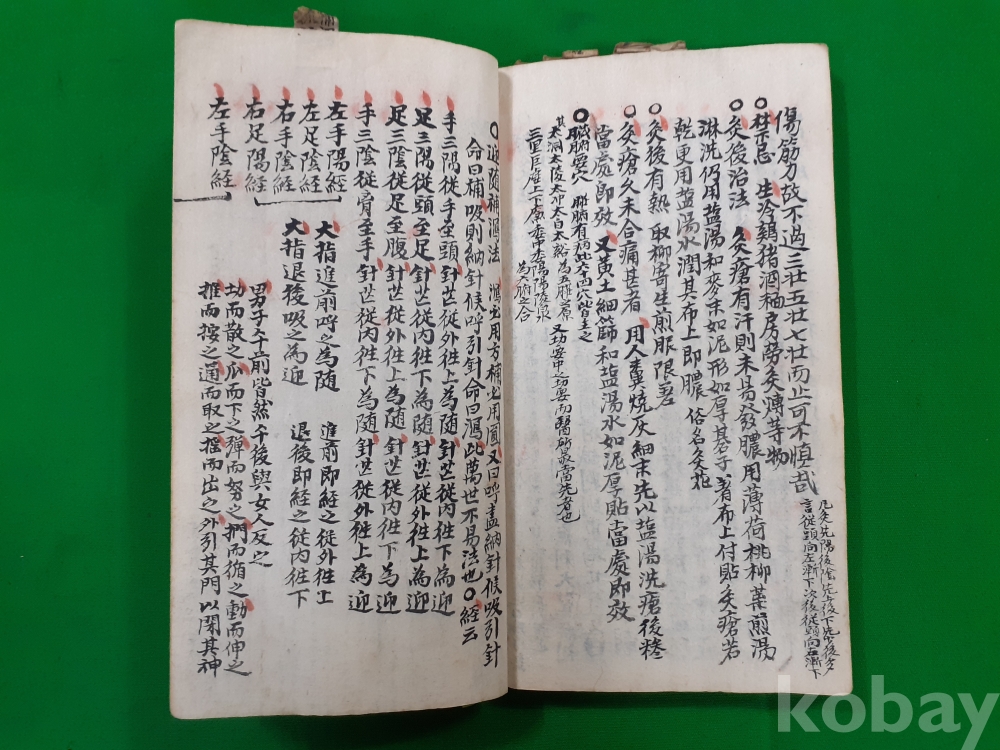 傷筋力故不過三壮五壮七壮而止可不慎哉
凡灸先陽後陰先上後下先少後多
言従頭向左漸下次後従頭向右漸下
○禁忌 生冷鷄猪酒麺房劳灸煿等物
○灸後治法 灸瘡有汗則未易發膿用薄荷桃柳葉煎湯
淋洗仍用盐湯和麥末如泥形如厚碁子著布上付貼灸瘡若
乾更用盐湯水潤其布上即膿 俗名灸花
○灸後有熱取柳寄生煎服限差
○灸瘡久未合痛甚者 用人糞焼灰細末先以盐湯洗瘡後糝
當處即效 又黄土細篩和盐湯水如泥厚貼當處即效
○臟腑要穴 臟腑有病此大四穴皆主之 又切要中之切要而醫所最當先者也
其太渊太陵太冲太白太谿為五臟之原
三里巨虚上下廉委中委陽陽陵泉
為六腑之合
○迎随補瀉法 瀉必用方補必用圓又曰呼盡納針候吸引針
命曰補吸則納針候呼引針命曰瀉此萬世不易法也○経云
手三陽従手至頭針芒従外徃上為随針芒従内徃下為迎
足三陽従頭至足針芒従内徃下為随針芒従外徃上為迎
足三陰従足至腹針芒従外徃上為随針芒従内徃下為迎
手三陰従胷至手針芒従内徃下為随針芒従外徃上為迎
左手陽経
左足陰経
右手陰経
右足陽経
大指進前呼之為随 進前即経之従外徃上
大指退後吸之為迎 退後即経之従内徃下
左手陰経
男子午前皆然午後與女人反之
切而散之爪而下之弹而努之捫而循之動而伸之
推而按之通而取之摇而出之外引其門以閉其神
kobay